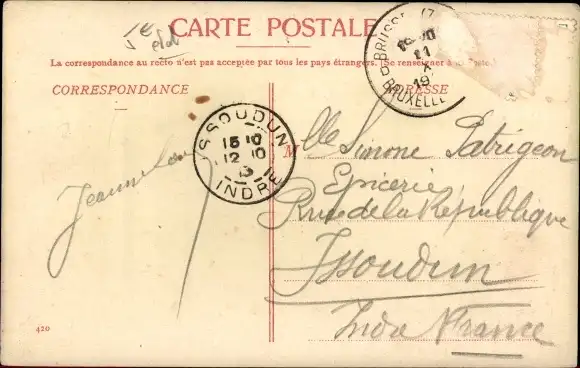 CARTE POSTALE
La correspondance au recto n'est pas acceptée par tous les pays étrangers. (Se renseigner à la Poste.)
CORRESPONDANCE
ADRESSE
BRUXELLE
11
X
ISSOUDUN
15 10
12 10
13
INDRE
Mlle Simone Patrigeon
Epicerie
Rue de la République
Issoudun
Indre France
420